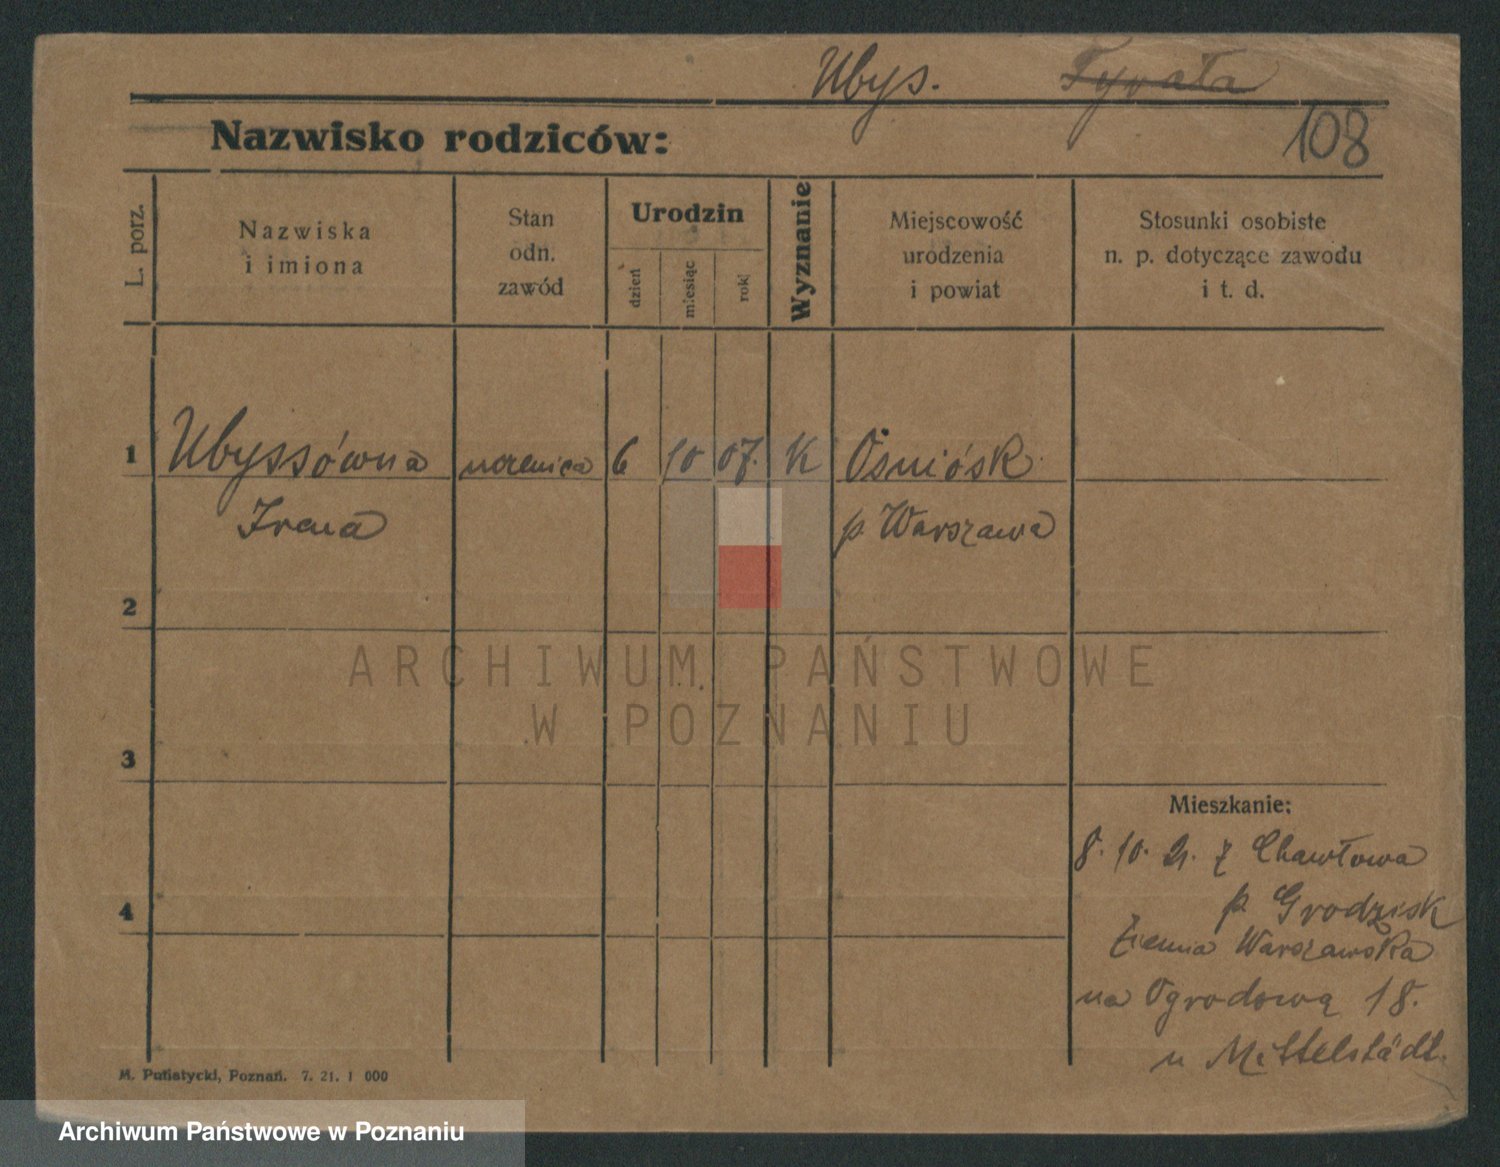 Ubys. Tyrała
Nazwisko rodziców:
108
L. porz.
Nazwiska
i imiona
Stan
odn.
zawód
Urodzin
dzień
miesiąc
rok
Wyznanie
Miejscowość
urodzenia
i powiat
Stosunki osobiste
n. p. dotyczące zawodu
i t. d.
1 Ubyssówna uczenica 6 10 07. K Ośniósk
Irena p. Warszawa
2
ARCHIWUM PAŃSTWOWE
W POZNANIU
3
Mieszkanie:
8. 10. 21. z Chawłowa
4
p. Grodzisk
Ziemia Warszawska
na Ogrodową 18.
u Mittelstädt.
M. Putiatycki, Poznań. 7. 21. 1 000
Archiwum Państwowe w Poznaniu